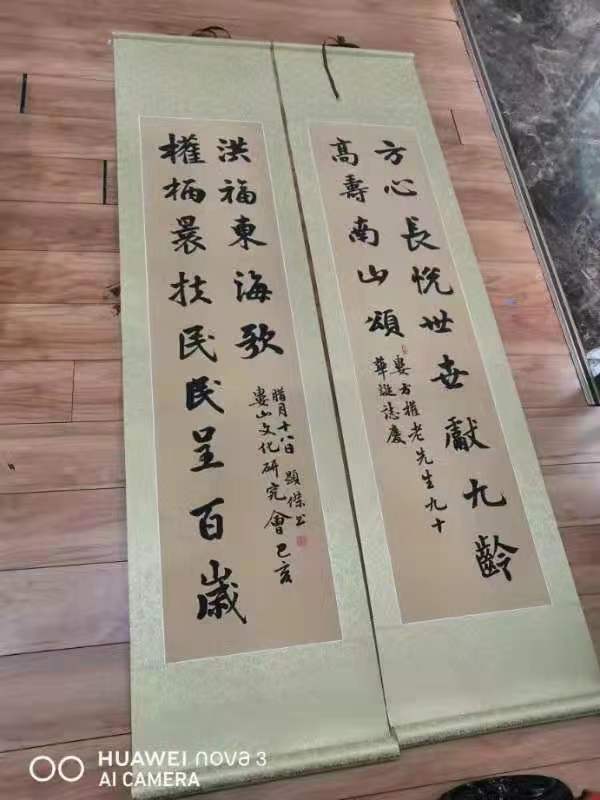 方心長悦世世獻九齡
高壽南山頌
婁方權老先生九十
華誕誌慶
權柄曩扶民民呈百歲
洪福東海歌
婁山文化研究會己亥
腊月十八日 顯傑书
HUAWEI nova 3
AI CAMERA